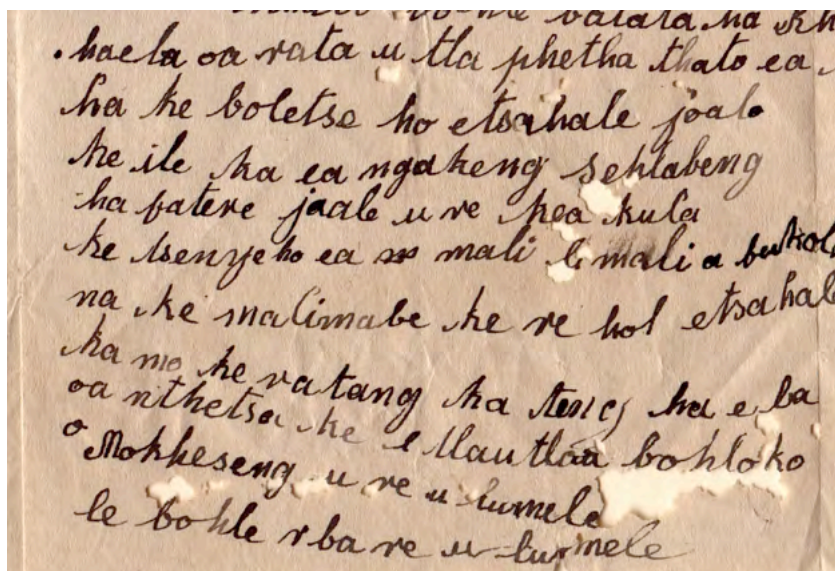 batata ha
haela oa rata u tla phetha thato ea
ha ke boletse ho etsahale joalo
ke ile ka ea ngakeng sehlabeng
ha batere jaale u re kea kula
ke tsenyeho ea mali le mali a
na ke malimabe ke re hol etsahal
ka mo ke ratang ka teng ha e ba
oa nthetsa ke e utlautlaa bohloko
Mokheseng u re u lumele
le bohle rba re u lumele